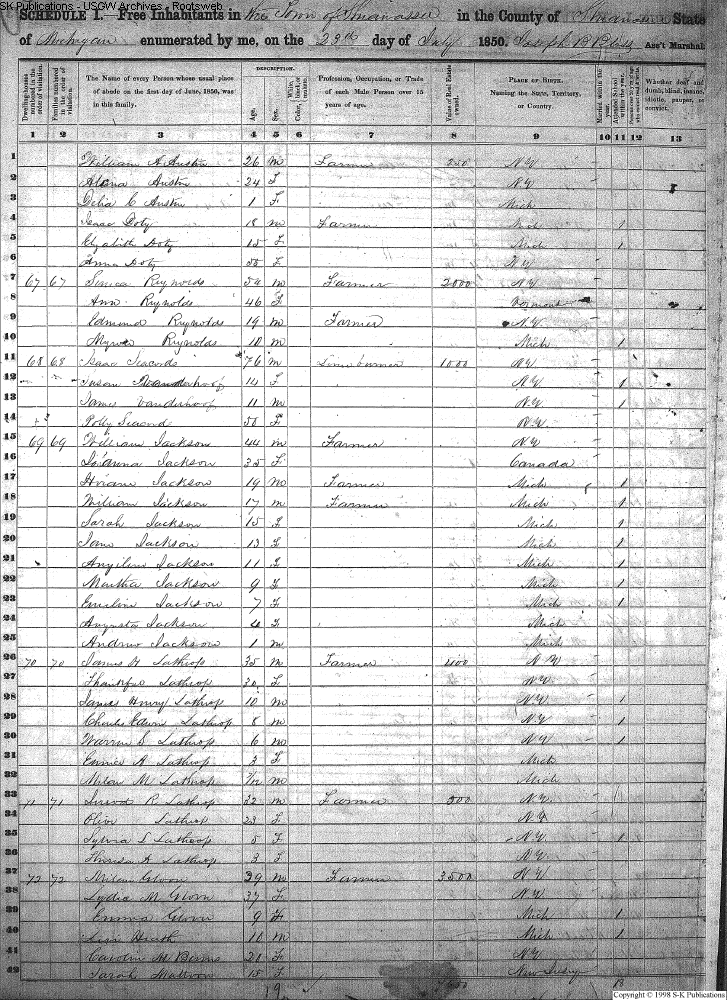 SK Publications - USGW Archives - Rootsweb
SCHEDULE 1.—Free Inhabitants in the Town of Shiawassee in the County of Shiawassee State
of Michigan enumerated by me, on the 28th day of July 1850. Joseph B Bliss Ass't Marshal
Dwelling-houses numbered in the order of visitation.
Families numbered in the order of visitation.
The Name of every Person whose usual place of abode on the first day of June, 1850, was in this family.
DESCRIPTION.
Age.
Sex.
Color, White, black, or mulatto.
Profession, Occupation, or Trade of each Male Person over 15 years of age.
Value of Real Estate owned.
PLACE OF BIRTH. Naming the State, Territory, or Country.
Married within the year.
Attended School within the year.
Whether deaf and dumb, blind, insane, idiotic, pauper, or convict.
1 2 3 4 5 6 7 8 9 10 11 12 13
1 William A Austin 26 m Farmer 250 N Y
2 Austin 24 F N Y
3 Delia C Austin 1 F Mich
4 Isaac Doty 18 m Farmer 1
5 Doty 15 F Mich 1
6 Anna Doty 50 F N Y
7 67 67 Seneca Reynolds 54 m Farmer 2000 N Y
8 Ann Reynolds 46 F Vermont
9 Edmund Reynolds 19 m Farmer N Y
10 Reynolds 10 m Mich 1
11 68 68 Isaac Seacords 76 m Lime burner 1000 N Y
12 Susan Vanderhoof 14 F N Y 1
13 James Vanderhoof 11 m N Y 1
14 Polly Seacord 50 F N Y
15 69 69 William Jackson 44 m Farmer N Y
16 Jackson 35 F Canada
17 Hiram Jackson 19 m Farmer Mich 1
18 William Jackson 17 m Farmer Mich 1
19 Sarah Jackson 15 F Mich 1
20 Jane Jackson 13 F Mich 1
21 Angeline Jackson 11 F Mich 1
22 Martha Jackson 9 F Mich 1
23 Emeline Jackson 7 F Mich 1
24 Augusta Jackson 4 F Mich
25 Andrew Jackson 1 m Mich
26 70 70 James H Lathrop 35 m Farmer 400 N Y
27 Thankful Lathrop 30 F N Y
28 James Henry Lathrop 10 m N Y 1
29 Charles Edwin Lathrop 8 m N Y 1
30 Warren S Lathrop 6 m N Y 1
31 A Lathrop 3 F Mich
32 Milan M Lathrop m Mich
33 71 71 R Lathrop 32 m Farmer 500 N Y
34 Lathrop 23 F N Y
35 Sylvia L Lathrop 5 F N Y 1
36 A Lathrop 3 F N Y
37 72 72 Milan Glover 39 m Farmer 3500 N Y
38 Lydia M Glover 37 F N Y
39 Emma Glover 9 F Mich 1
40 Heath 10 m Mich 1
41 Caroline M 21 F N Y
42 Sarah Mattoon 15 F New Jersey
19 18
Copyright © 1998 S-K Publications